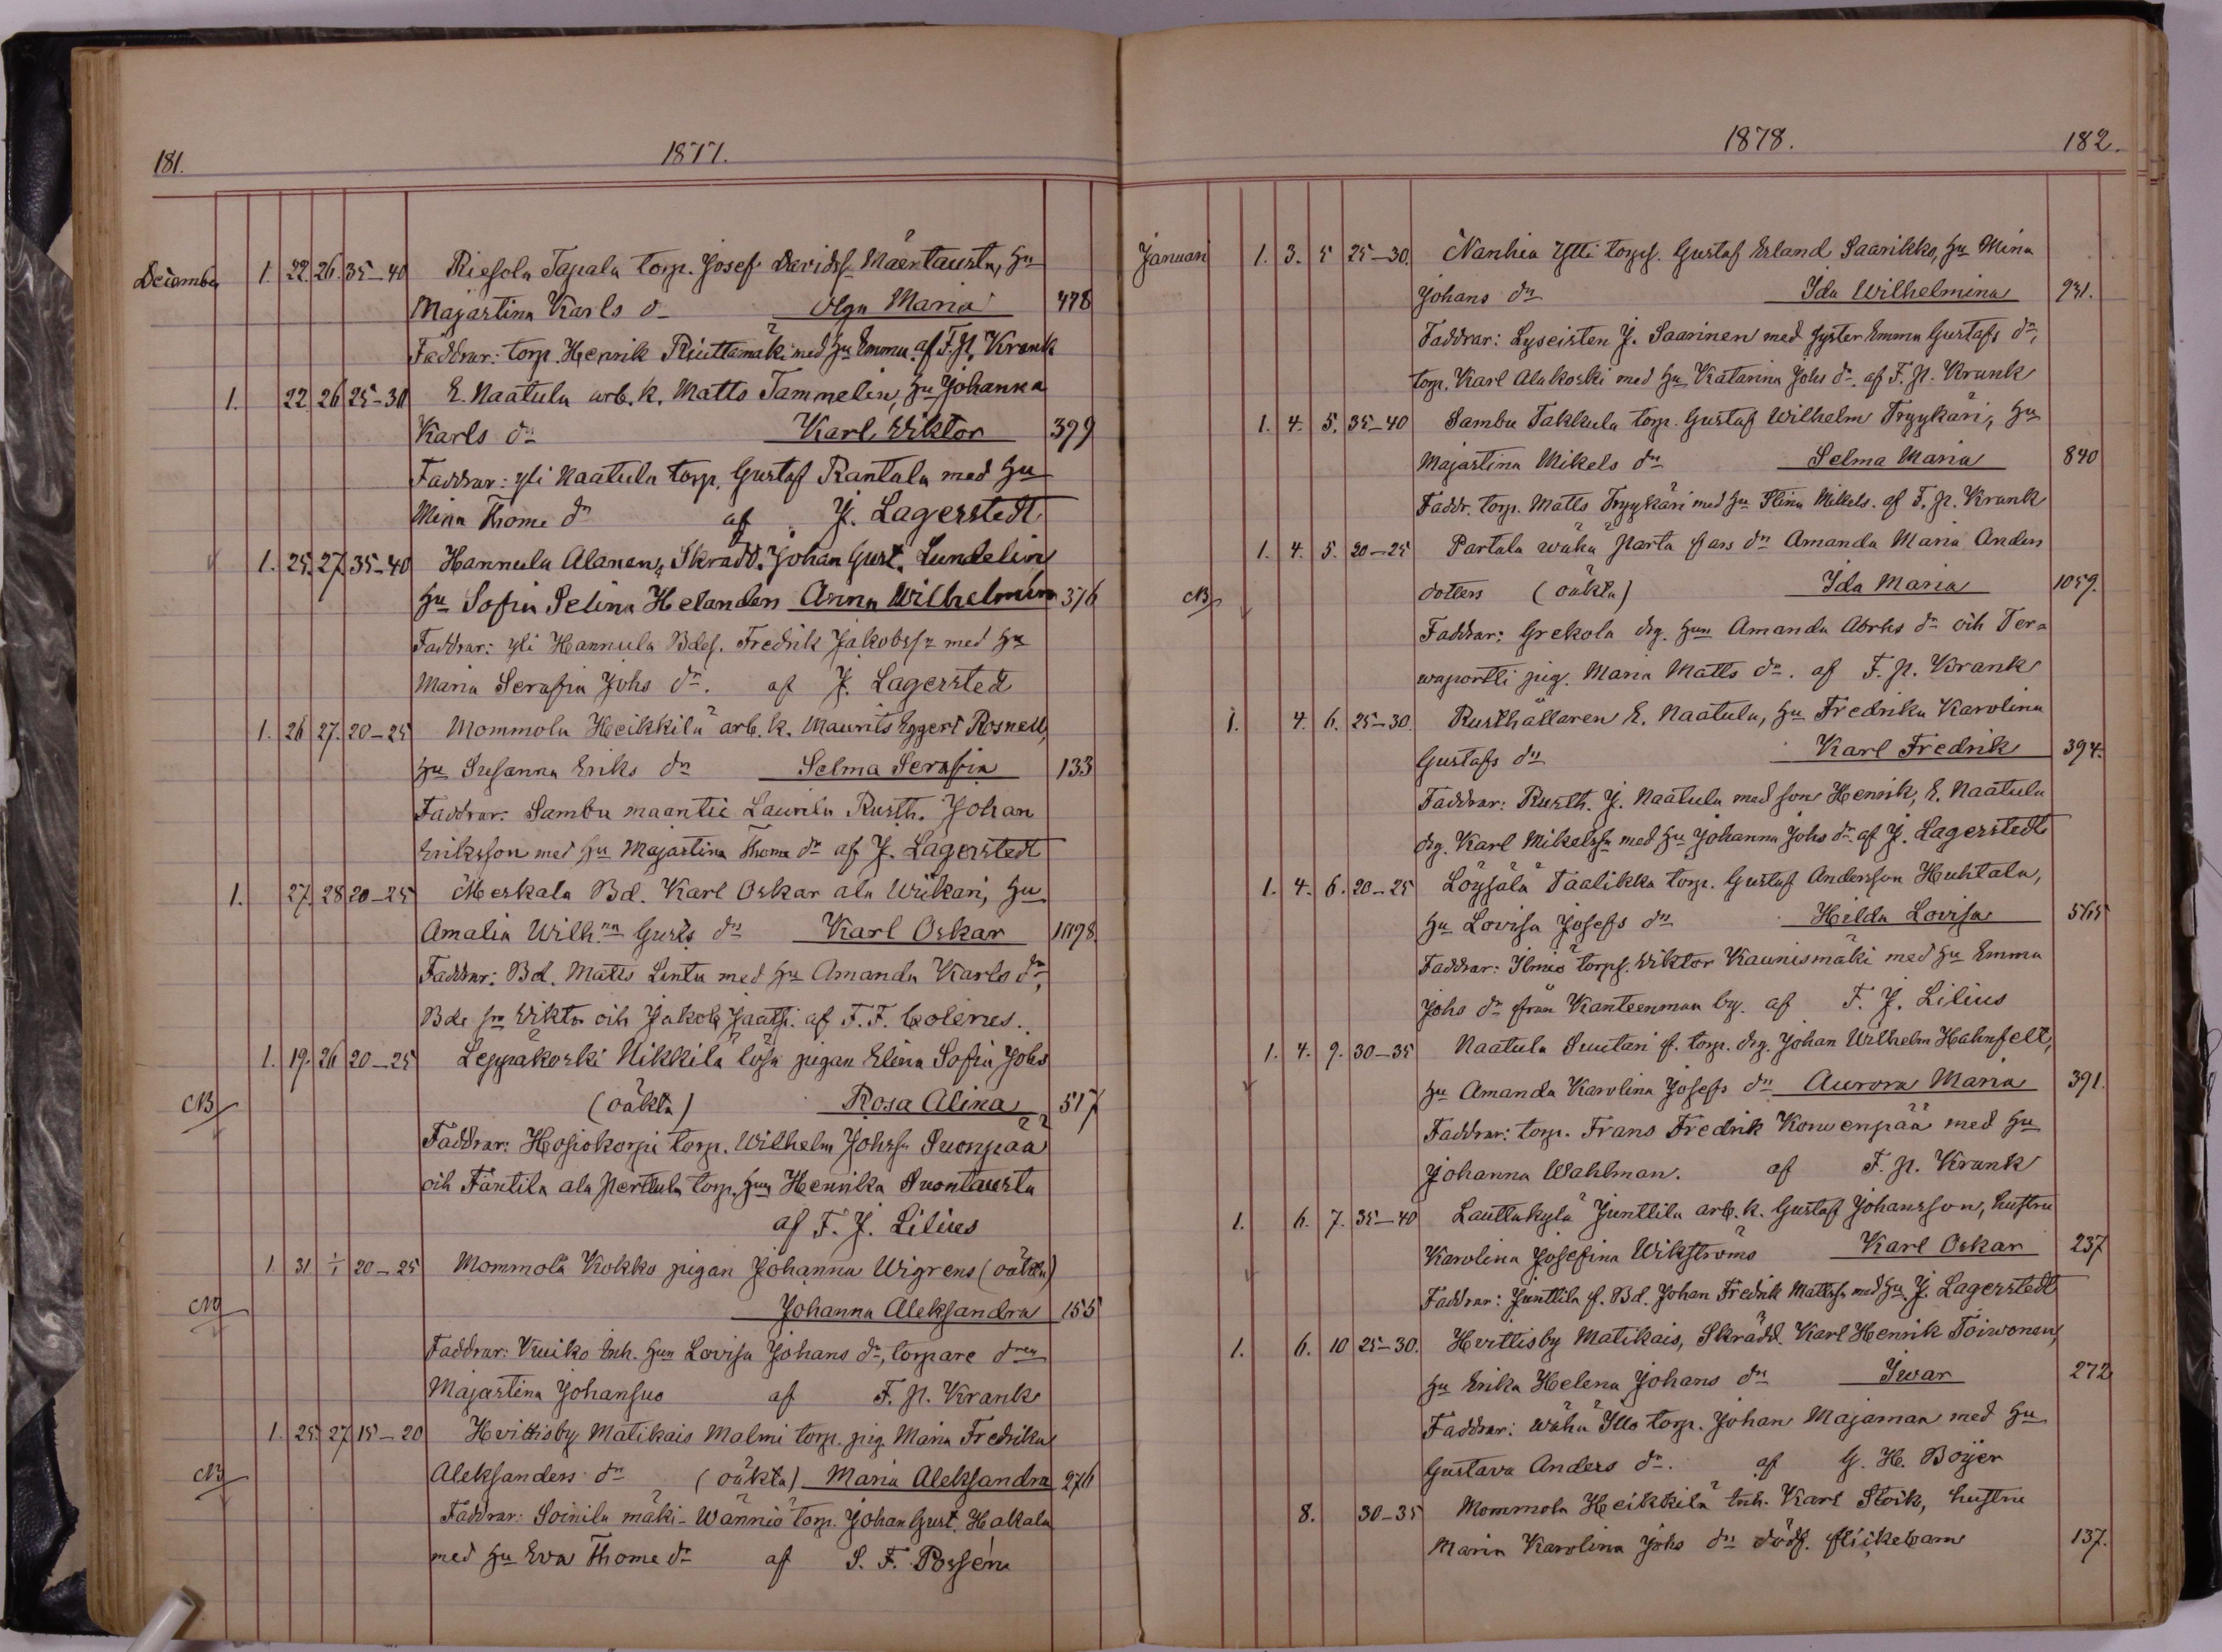 181.
1877.
December 1. 22. 26. 35-40 Riesola Tapala torp. Josef Davidss. Mäentausta, Hu
Majastina Karls d. Olga Maria 478
Faddrar: torp. Henrik Riuttamäki med Hu Emma. af F. P. Krank
1. 22 26 25-30 E. Naatula arb. k. Matts Tammelin, Hu Johanna
Karls dr Karl Viktor 399
Faddrar: yli Naatula torp. Gustaf Rantala med Hu
Mina Thome dr af J. Lagerstedt
1. 25. 27. 35-40 Hannula Alanen, Skradd. Johan Gust. Lundelin
Hu Sofia Selina Helander Anna Wilhelmin 376
Faddrar: yli Hannula Bdes. Fredrik Jakobssn med Hu
Maria Serafia Johs dr. af J. Lagersted
1. 26 27. 20-25 Mommola Heikkilä arb. k. Maurits Eggert Rosnell,
Hu Susanna Eriks dr Selma Serafia 133
Faddrar: Sambu maantie Laurila Rusth. Johan
Eriksson med Hu Majastina Thome dr af J. Lagerstedt
1. 27. 28 20-25 Meskala Bd. Karl Oskar ala Wiikari, Hu
Amalia Wilh.na Gusts dr Karl Oskar 1098.
Faddrar: Bd. Matts Lintu med Hu Amanda Karls dr,
Bde sn Viktor och Jakob Jaatsi. af F. F. Colérus.
1. 19. 26 20-25 Leppäkoski Nikkilä lösa pigan Elina Sofia Johs
NB (oäkta) Rosa Alina 517
Faddrar: Hosiokorpi torp. Wilhelm Johssn Suonpää
och Fäntilä ala Perttula torp. Hun Henrika Suontausta
af F. J. Lilius
1 31 1/1 20-25 Mommola Kokko pigan Johanna Wigrens (oäkta)
NB Johanna Aleksandra 155
Faddrar: Kuiko Inh. Hun Lovisa Johans dr, torpare dren
Majastina Johansuo af F. P. Krank
1. 25 27 15-20 Hvittisby Matikais Malmi torp. pig. Maria Fredrika
NB Aleksanders dr (oäkta) Maria Aleksandra 276
Faddrar: Soinila mäki-Wännio torp. Johan Gust. Hakala
med Hu Eva Thome dr af S. F. Porsén
1878.
182.
Januari 1. 3. 5 25-30. Nanhia Ylli torps. Gustaf Erland Saarikko, Hu Mina
Johans dr Ida Wilhelmina 931.
Faddrar: Lyseisten J. Saarinen med syster Emma Gustafs dr,
torp. Karl Alakoski med Hu Katarina Johs dr. af F. P. Krank
1. 4. 5. 35-40 Sambu Takkula torp. Gustaf Wilhelm Tryykäri, Hu
Majastina Mikels dr Selma Maria 840
Faddr. torp. Matts Tryykäri med Hu Stina Mikels. af F. P. Krank
1. 4. 5. 20-25 Partala wähä Parta pars dr Amanda Maria Anders
NB dotters (oäkta) Ida Maria 1059.
Faddrar: Grekola drg. Hun Amanda Abrhs dr och Ter=
waportti pig. Maria Matts dr. af F. P. Krank
1. 4. 6. 25-30. Rusthållaren E. Naatula, Hu Fredrika Karolina
Gustafs dr Karl Fredrik 394.
Faddrar: Rusth. J. Naatula med son Henrik, E. Naatula
drg. Karl Mikelssn med Hu Johanna Johs dr. af J. Lagerstedt
1. 4. 6. 20-25 Löysälä Taalikka torp. Gustaf Andersson Huhtala,
Hu Lovisa Josefs dr Hilda Lovisa 565
Faddrar: Ilmio torps. Viktor Kaunismäki med Hu Emma
Johs dr från Kanteenmaa by. af F. J. Lilius
1. 4. 9. 30-35 Naatula Suutari f. torp. drg. Johan Wilhelm Hahnfelt,
Hu Amanda Karolina Josefs dr Aurora Maria 391.
Faddrar: torp. Frans Fredrik Korwenpää med Hu
Johanna Wahlman. af F. P. Krank
1. 6. 7. 35-40 Lauttakylä Junttila arb. k. Gustaf Johansson, hustru
Karolina Josefina Wikströms Karl Oskar 237
Faddrar: Junttila f. Bd. Johan Fredrik Mattssn med Hu. J. Lagerstedt
1. 6. 10 25-30. Hvittisby Matikais, Skrädd. Karl Henrik Toiwonen,
Hu Erika Helena Johans dr Iwar 272
Faddrar: wähä Illo torp. Johan Majamaa med Hu
Gustava Anders dr. af G. H. Böijer
8. 30-35 Mommola Heikkilä Inh. Karl Stoik, hustru
Maria Karolina Johs dr dödf. flickebarn 137.